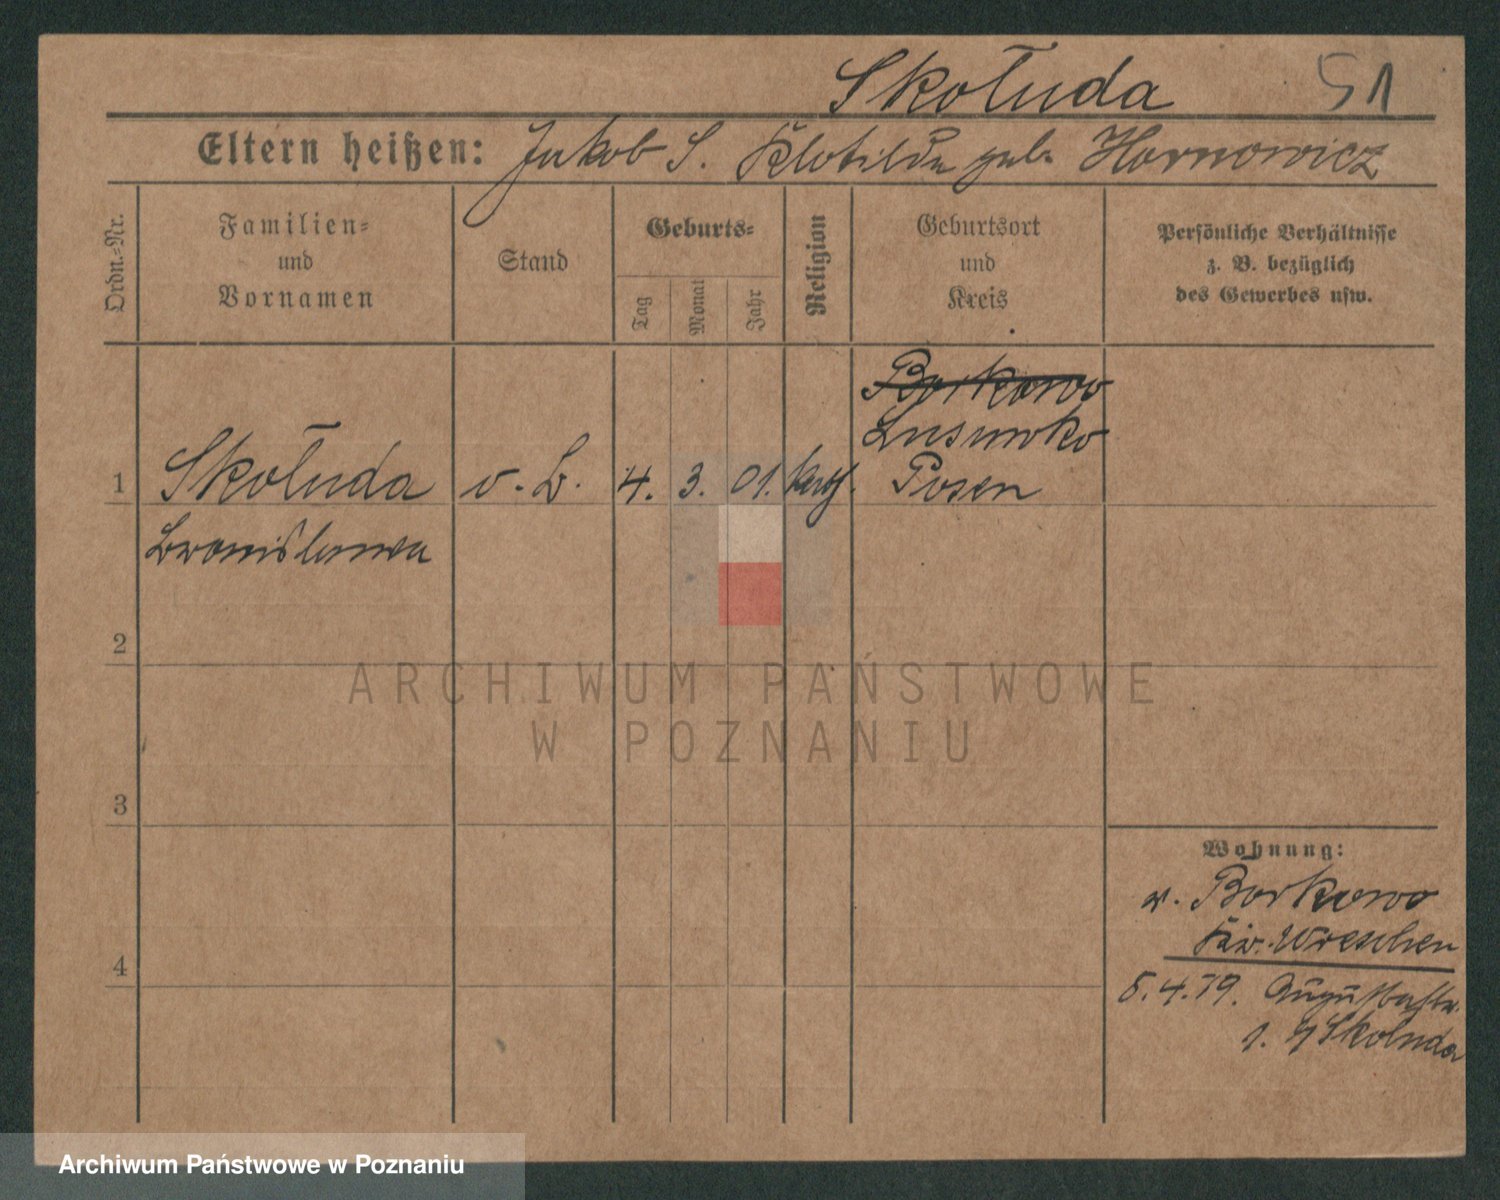 Skołuda 51
Eltern heißen: Jakob S. Klotilda geb. Hornowicz
Ordn.-Nr.
Familien-
und
Vornamen
Stand
Geburts-
Tag
Monat
Jahr
Religion
Geburtsort
und
Kreis
Persönliche Verhältnisse
z. B. bezüglich
des Gewerbes usw.
Borkowo
Lusowko
1 Skołuda o. B. 4. 3. 01. kath. Posen
Bronislawa
2
3
4
Wohnung:
v. Borkowo
Kr. Wreschen
8.4.19. Augustastr.
1. Skoluda
ARCHIWUM PAŃSTWOWE
W POZNANIU
Archiwum Państwowe w Poznaniu